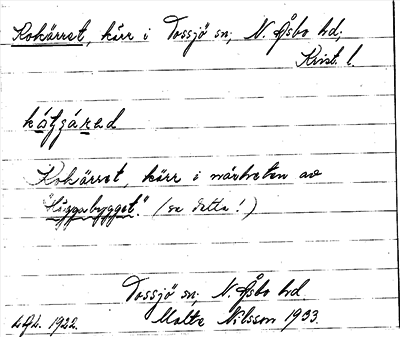 Rokärret, kärr i Tossjö sn; N. Åsbo hd;
Krist. l.
Rokärret, kärr i närheten av
"Viggabygget". (se detta!)
Tossjö sn; N. Åsbo hd
1922. Malte Nilsson 1933.